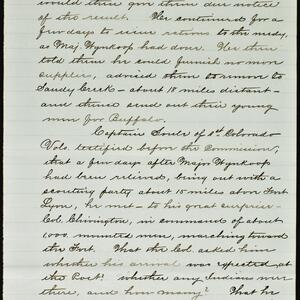 would then give them due notice
of the result. He continued for a
few days to issue rations to them,
as Maj. Wynkoop had done. He then
told them he could furnish no more
supplies, advised them to remove to
Sandy Creek – about 18 miles distant –
and thence send out their young
men for Buffalo.
Captain Soule of 1st Colorado
Vols. testified before the Commission,
that a few days after Major Wynkoop
had been relieved, being out with a
scouting party about 15 miles above Fort
Lyon, he met – to his great surprise –
Col. Chivington, in command of about
1000 mounted men, marching toward
the Fort. That the Col. asked him
whether his arrival was expected at
the Post? whether any Indians were
there, and how many? That he